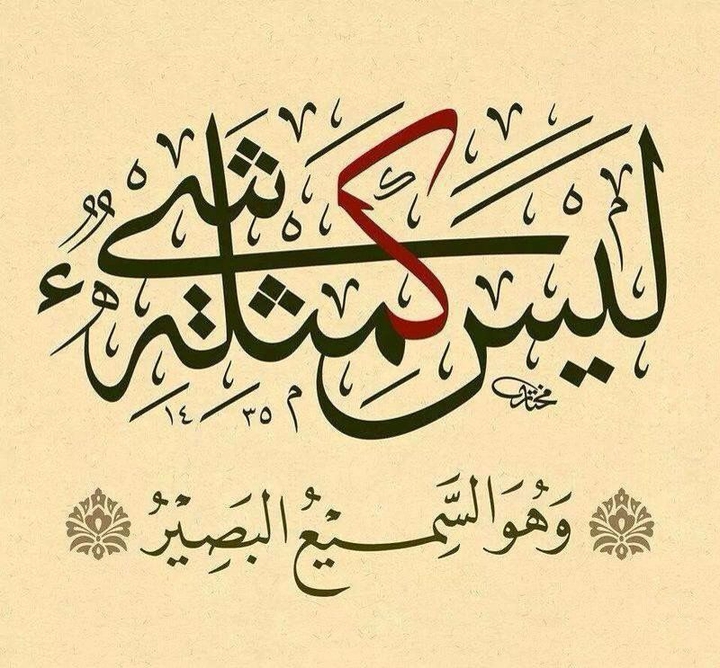 لَيْسَ كَمِثْلِهِ شَيْءٌ
مختار ١٤٣٥
وَهُوَ السَّمِيعُ البَصِيْرُ